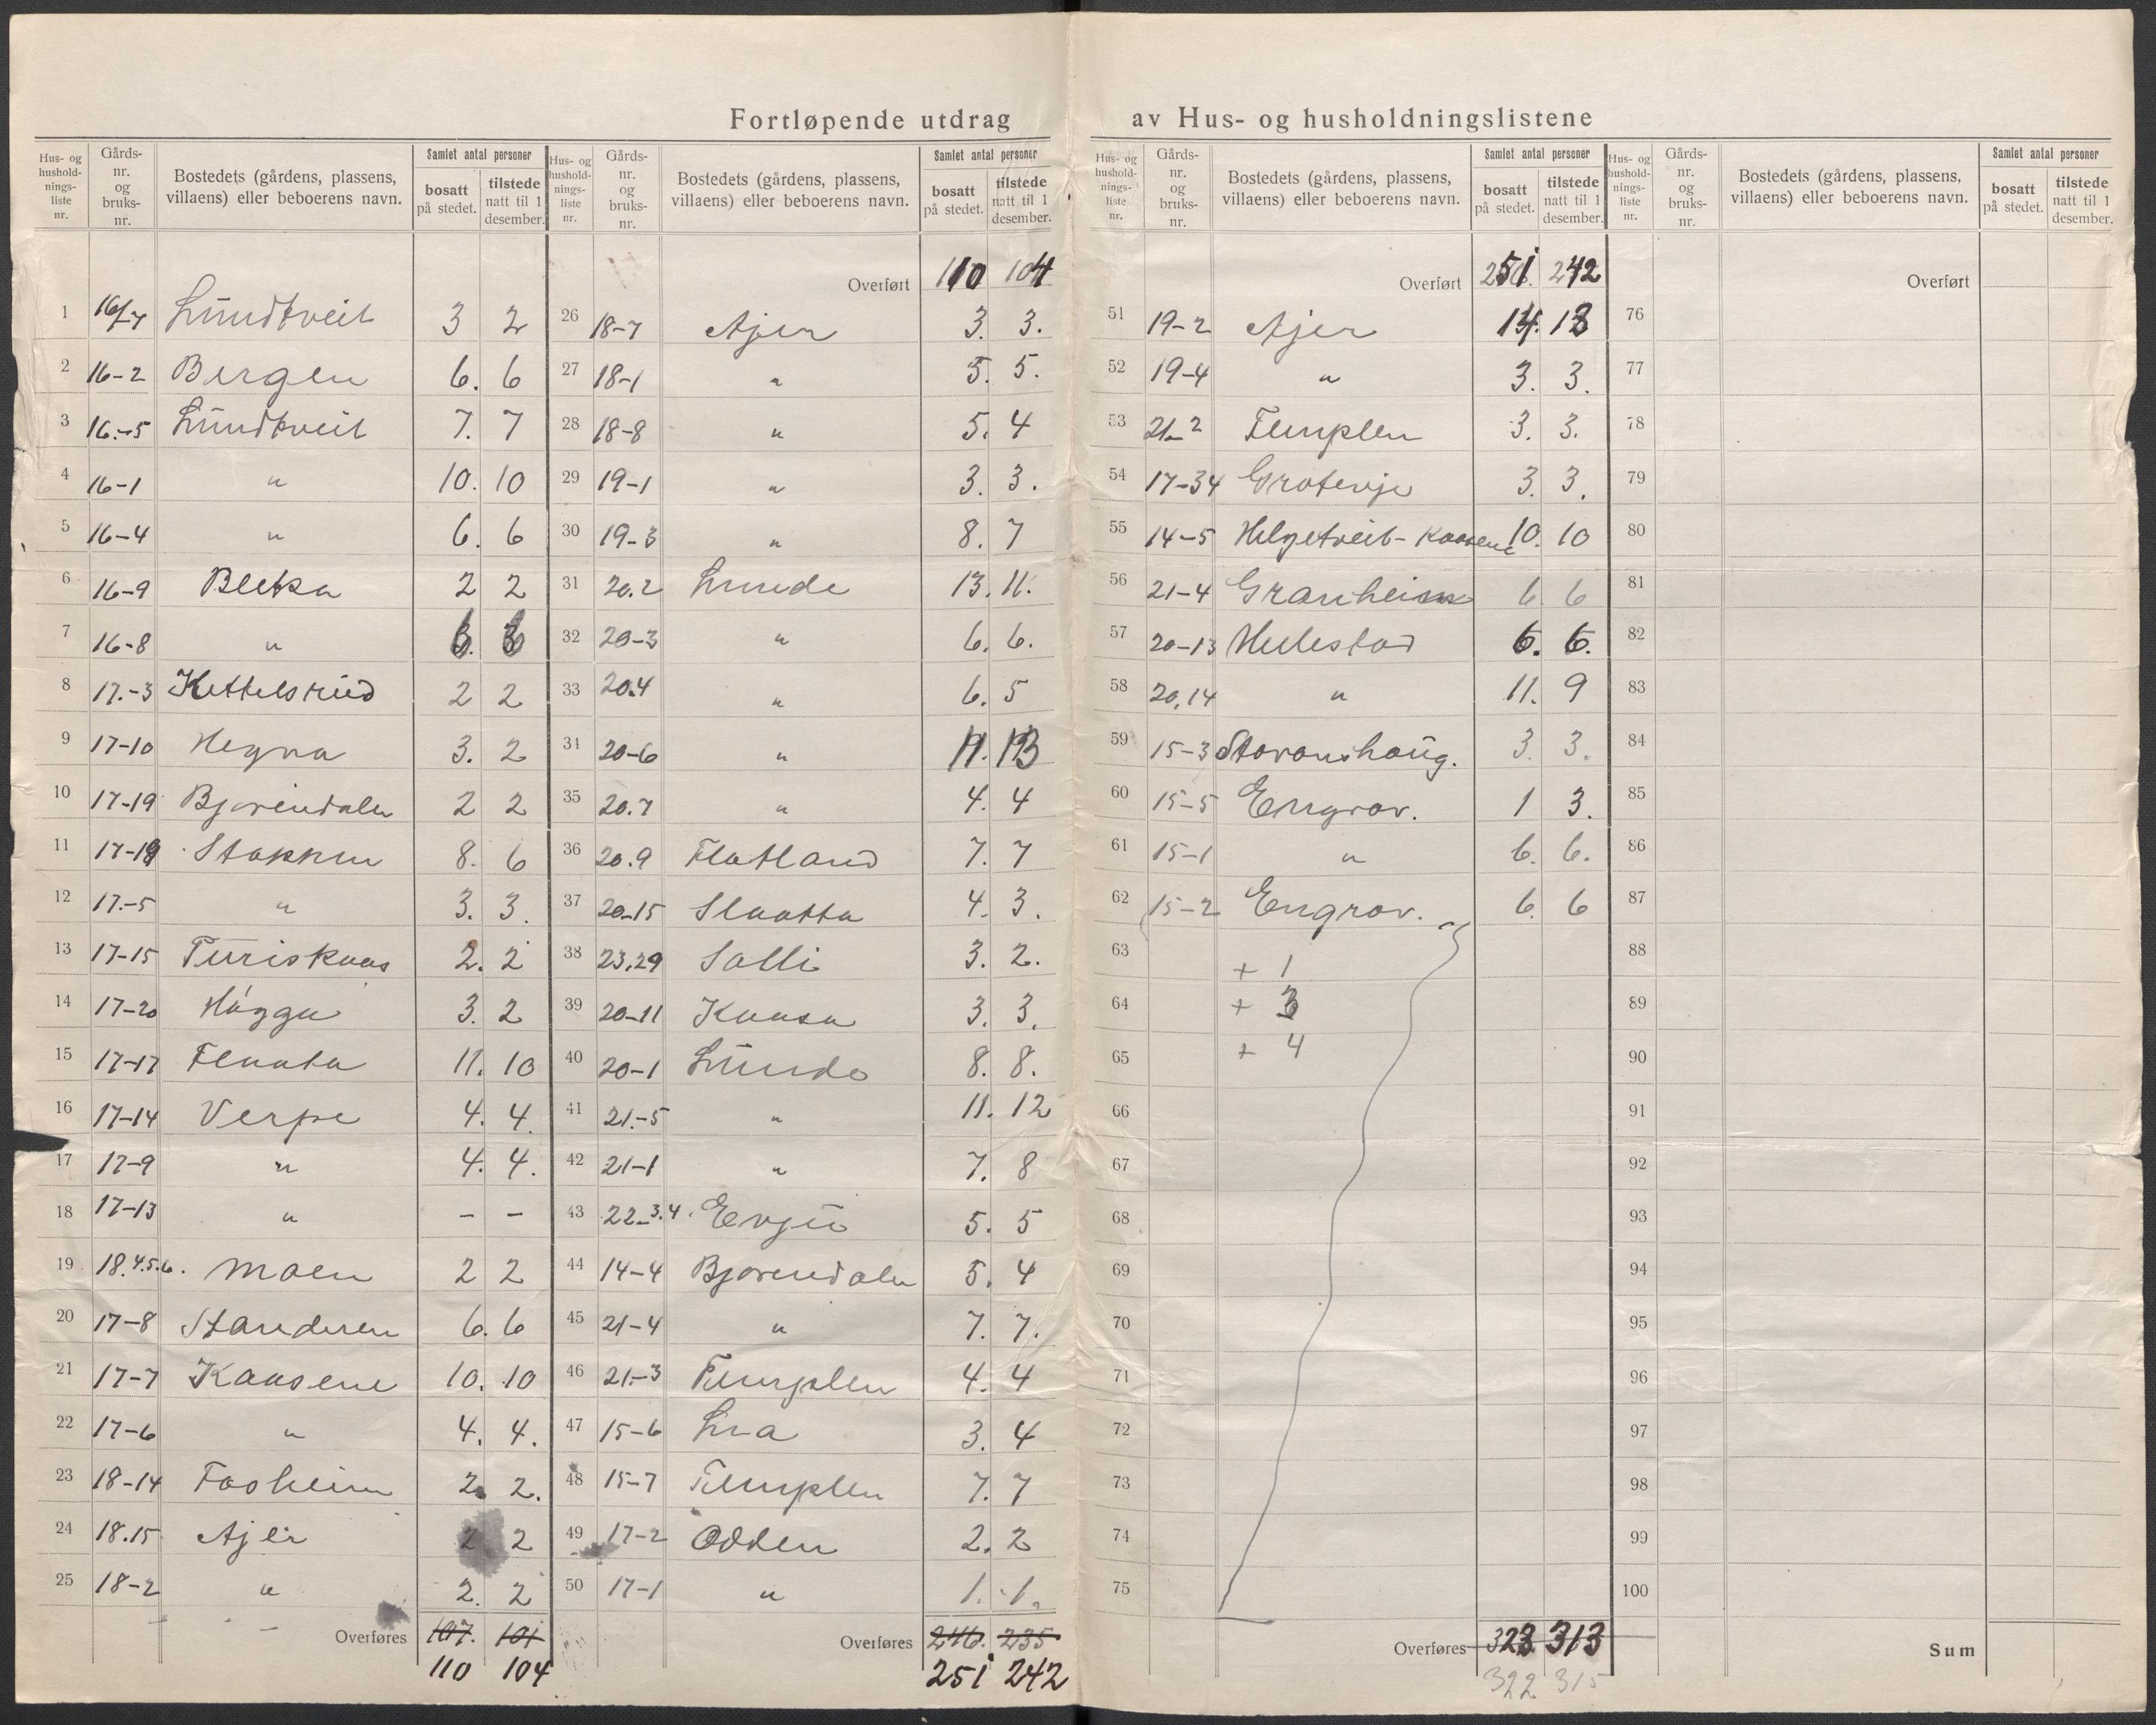 Fortløpende utdrag av Hus- og husholdningslistene
Hus- og husholdnings-liste nr. Gårds-nr. og bruks-nr. Bostedets (gårdens, plassens, villaens) eller beboerens navn. Samlet antal personer bosatt på stedet. tilstede natt til 1 desember.
1 16/7 Lundtveit 3 2
2 16-2 Bergen 6. 6
3 16.-5 Lundtveit 7. 7
4 16-1 " 10. 10
5 16-4 " 6. 6
6 16-9 Bleka 2 2
7 16-8 "
8 17.-3 Kettelsrud 2 2
9 17-10 Hegna 3. 2
10 17-19 Bjørendalen 2 2
11 17-18 Stokken 8. 6
12 17.-5 " 3. 3.
13 17-15 Turiskaas 2. 2
14 17-20 Høgga 3. 2
15 17-17 Flaata 11. 10
16 17-14 Verpe 4. 4.
17 17-9 " 4. 4.
18 17-13 " - -
19 18.4.5.6. Moen 2 2
20 17-8 Standeren 6. 6
21 17-7 Kaasene 10. 10
22 17-6 " 4. 4.
23 18-14 Fosheim 2. 2.
24 18.15 Ajer 2 2
25 18-2 " 2. 2
Overføres 107. 101
110 104
Hus- og husholdnings-liste nr. Gårds-nr. og bruks-nr. Bostedets (gårdens, plassens, villaens) eller beboerens navn. Samlet antal personer bosatt på stedet. tilstede natt til 1 desember.
Overført 110 104
26 18-7 Ajer 3. 3.
27 18-1 " 5. 5.
28 18-8 " 5. 4
29 19-1 " 3. 3.
30 19-3 " 8. 7
31 20.2 Lunde 13. 11.
32 20-3 " 6. 6.
33 20.4 " 6. 5
34 20-6 "
35 20.7 " 4. 4
36 20.9 Flatland 7. 7
37 20-15 Slaatta 4. 3.
38 23,29 Solli 3. 2.
39 20-11 Kaasa 3. 3.
40 20-1 Lunde 8. 8.
41 21.-5 " 11. 12
42 21-1 " 7. 8
43 22-3.4. Evju 5. 5
44 14-4 Bjørendalen 5. 4
45 21-4 " 7. 7.
46 21-3 Templen 4. 4
47 15-6 Lia 3. 4
48 15-7 Templen 7. 7
49 17-2 Odden 2. 2
50 17-1 " 1. 1.
Overføres 246. 235
251 242
Hus- og husholdnings-liste nr. Gårds-nr. og bruks-nr. Bostedets (gårdens, plassens, villaens) eller beboerens navn. Samlet antal personer bosatt på stedet. tilstede natt til 1 desember.
Overført 251. 242
51 19-2 Ajer 14. 13
52 19-4 " 3. 3.
53 21-2 Templen 3. 3.
54 17-34 Grotevje 3. 3.
55 14-5 Helgetveit-Kaasene 10. 10
56 21-4 Granheim 6. 6
57 20-13 Hulestad 6. 6.
58 20,14 " 11. 9
59 15-3 Stavanshaug. 3. 3.
60 15-5 Engrav. 1 3.
61 15-1 " 6. 6.
62 15-2 Engrav. 6. 6
63 + 1
64 + 3
65 + 4
66
67
68
69
70
71
72
73
74
75
Overføres 323 313
322 315
Hus- og husholdnings-liste nr. Gårds-nr. og bruks-nr. Bostedets (gårdens, plassens, villaens) eller beboerens navn. Samlet antal personer bosatt på stedet. tilstede natt til 1 desember.
Overført
76
77
78
79
80
81
82
83
84
85
86
87
88
89
90
91
92
93
94
95
96
97
98
99
100
Sum